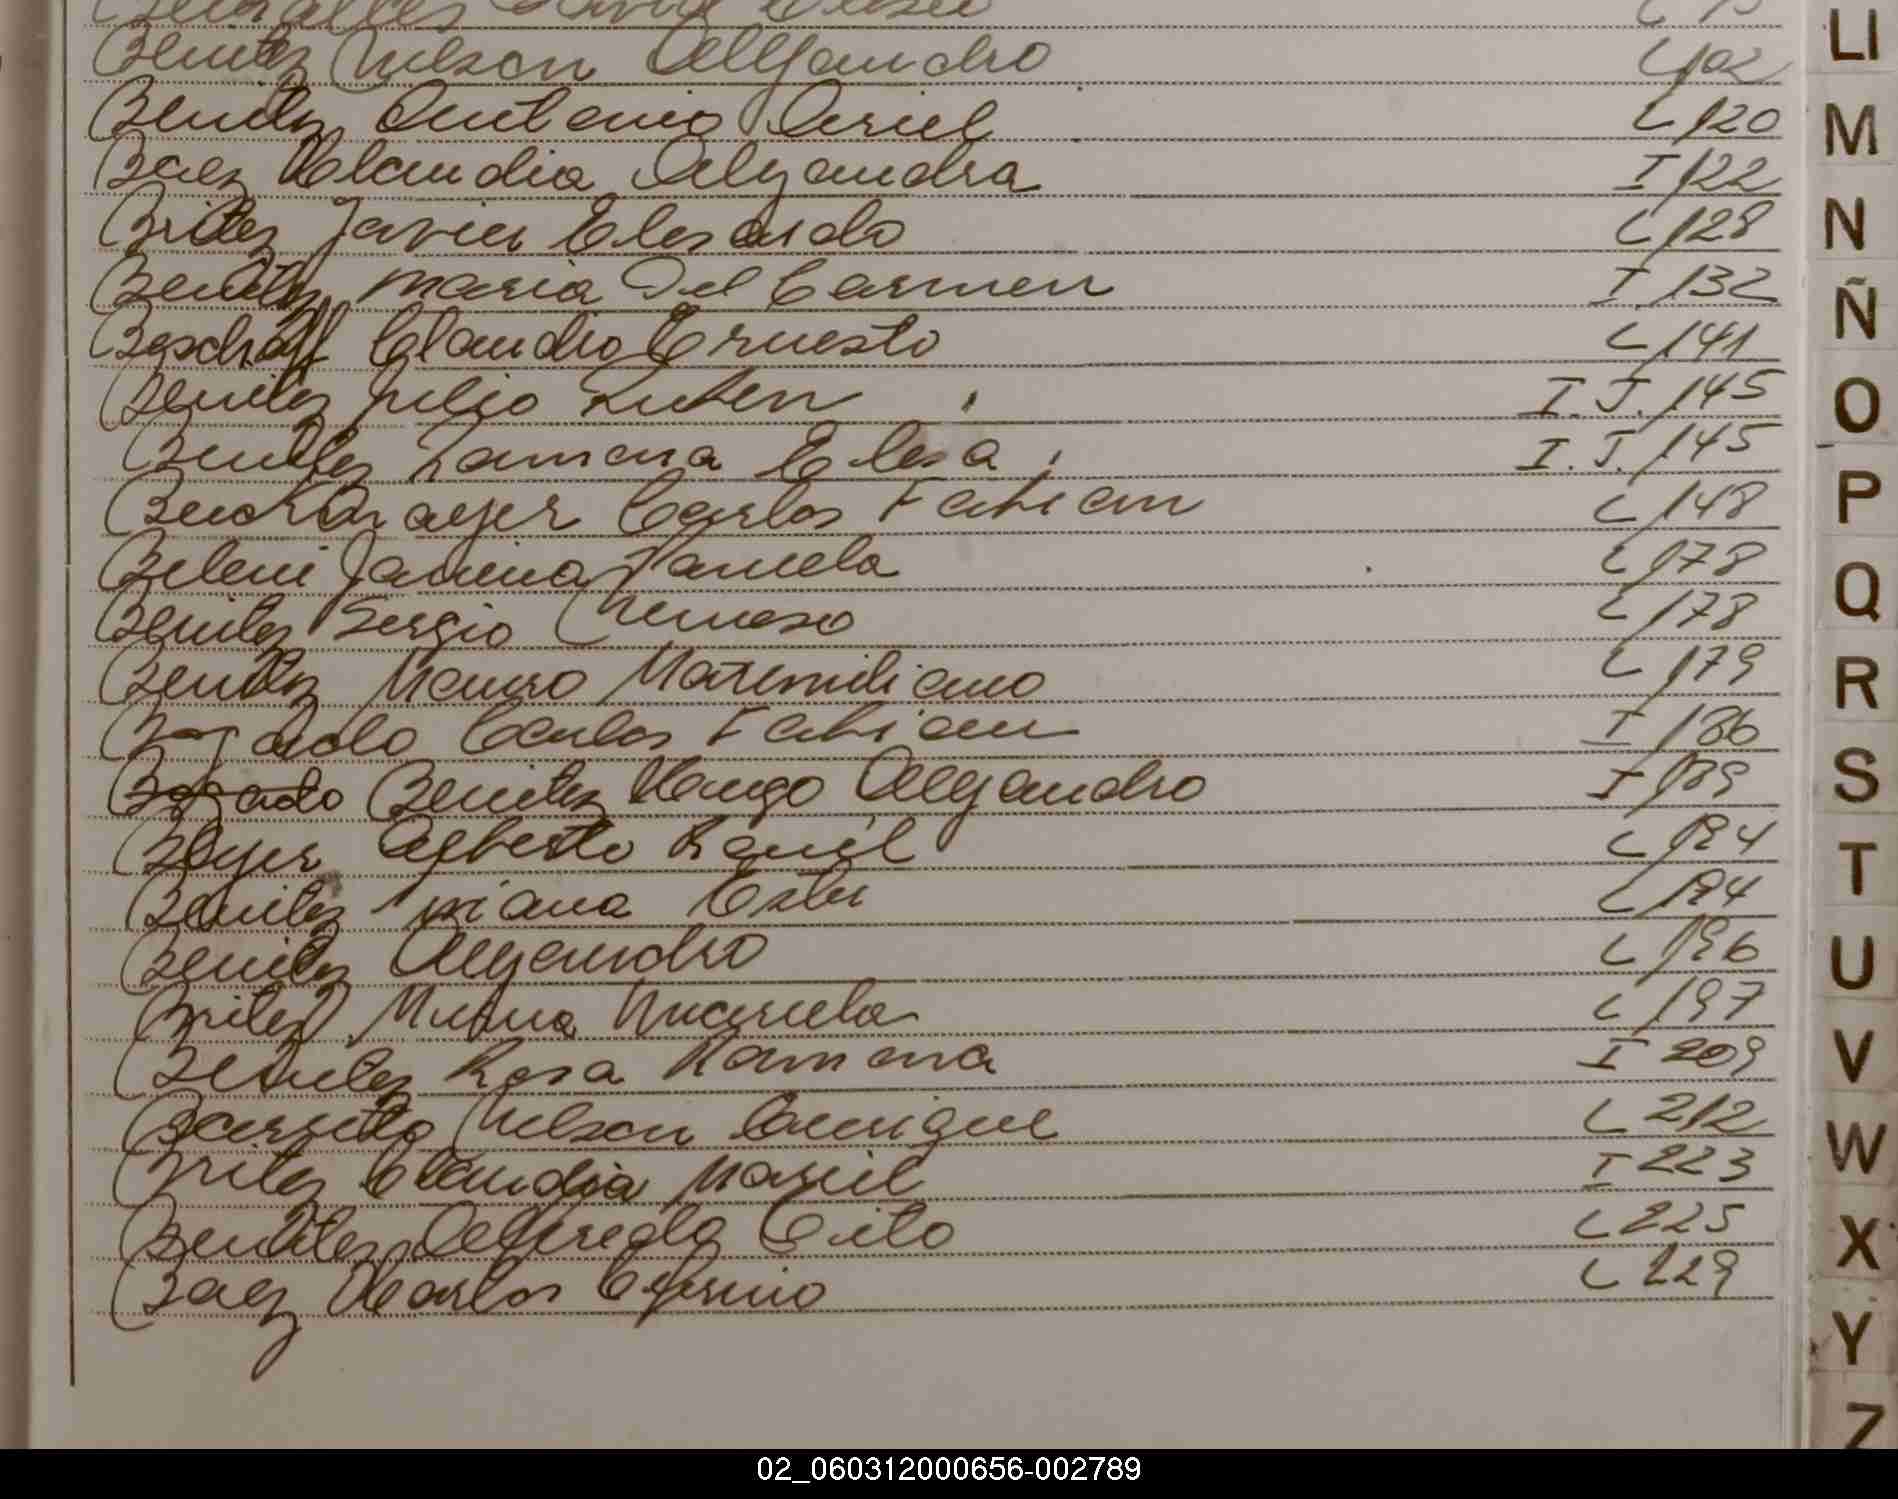 Benitez Nelson Alejandro L 102
Benitez Antonio Ariel L 120
Baez Claudia Alejandra I 122
Britez Javier Elisardo L 128
Benitez Maria Del Carmen I 132
Claudio Ernesto L 141
Benitez Julio Ruben I. J. 145
Benitez Ramona Elisa I. J. 145
Carlos Fabian L 148
Beleni Janina Pamela L 178
Benitez Sergio L 178
Benitez Mauro Maximiliano L 179
Bogado Carlos Fabian I 186
Bogado Benitez Hugo Alejandro I 189
Beyer Alberto Raul L 194
Benitez Ester L 194
Benitez Alejandro L 196
Britez Mirna Maricela L 197
Benitez Rosa Ramona I 209
Barreto Nelson Enrique L 212
Britez Claudia Mariel I 223
Benitez Alfredo Tito L 225
Baez Carlos Ceferino L 229
LL
M
N
Ñ
O
P
Q
R
S
T
U
V
W
X
Y
Z
02_060312000656-002789